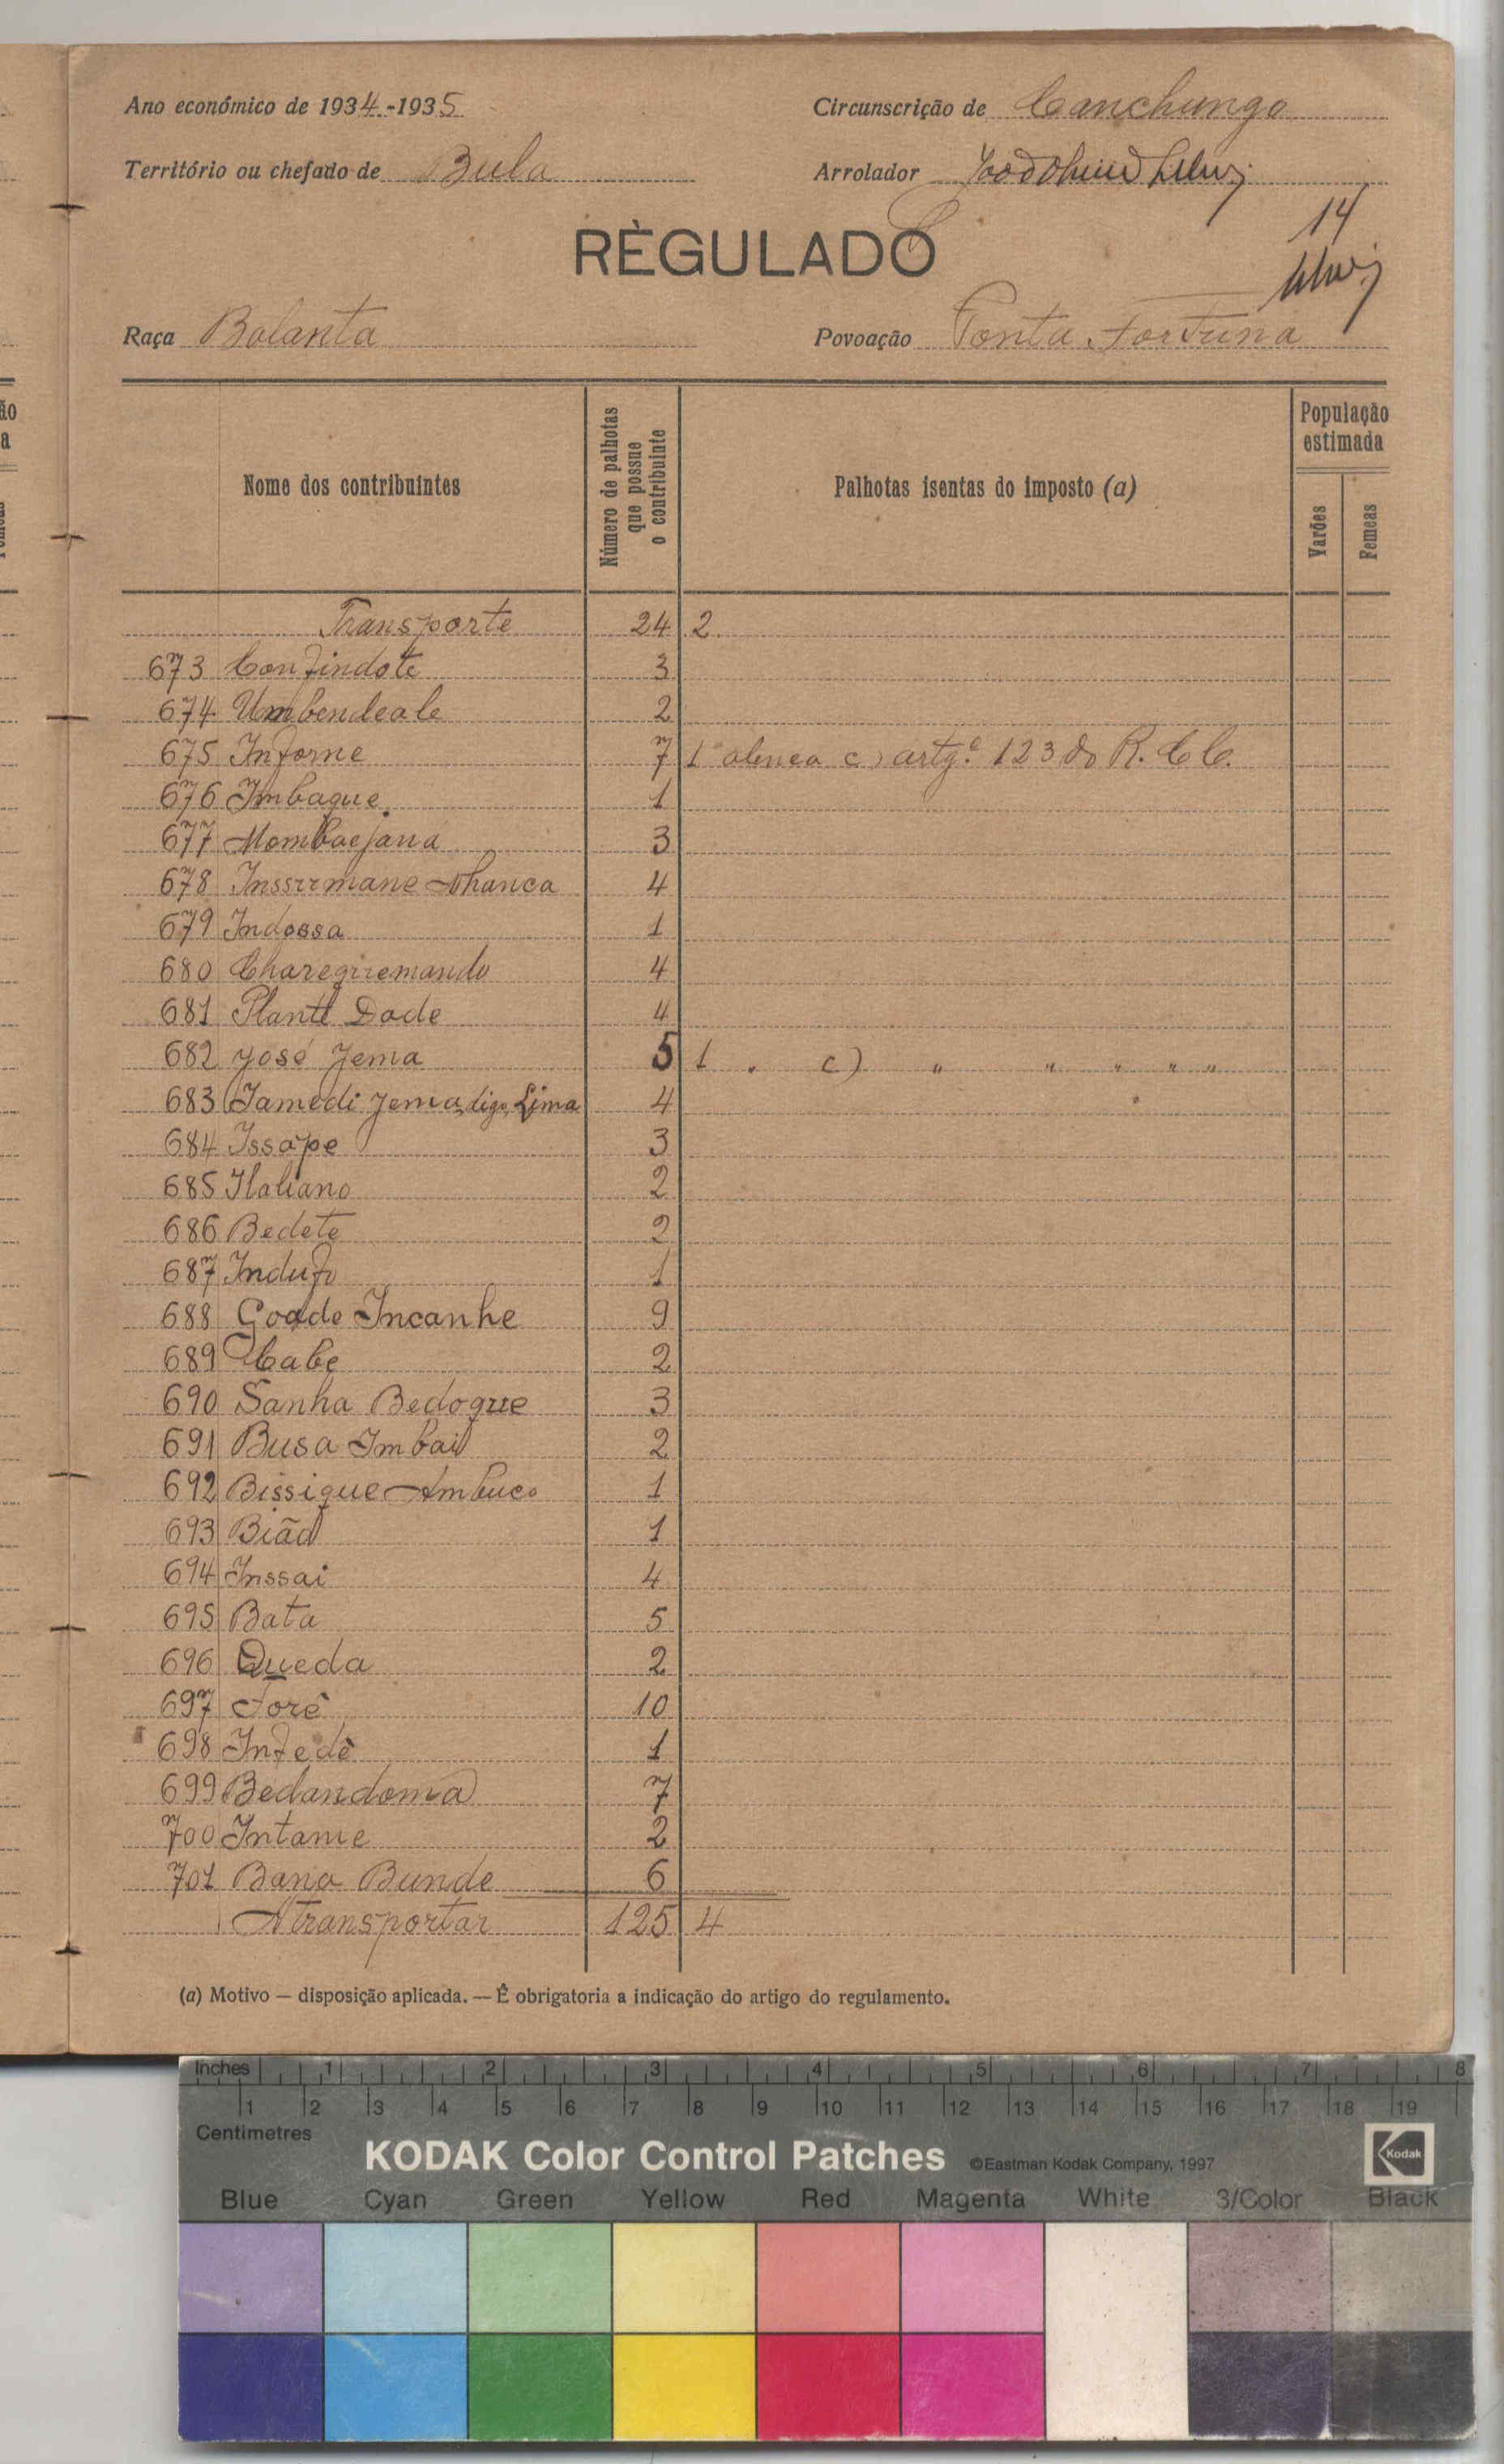 Ano económico de 1934-1935 Circunscrição de Canchungo
Território ou chefado de Bula Arrolador
14
RÈGULADO
Raça Balanta Povoação Ponta Fortuna
Nome dos contribuintes
Número de palhotas que possue o contribuinte
Palhotas isentas do imposto (a)
População estimada
Varões
Femeas
Transporte 24 2
673 Confindote 3
674 Umbendeale 2
675 Inforne 7 1 alinea c) artg.º 123 do R. C C.
676 Imbaque 1
677 3
678 Inssirmane Nhanca 4
679 Indossa 1
680 Charegüemando 4
681 Plantl Dade 4
682 José Jema 5 1 " c) " " " " "
683 Jamedi Jema, digo, Lima 4
684 Issape 3
685 Italiano 2
686 Bedete 2
687 Indufo 1
688 Goade Incanhe 9
689 Cabe 2
690 Sanha Bedogue 3
691 Busa Imbail 2
692 Bissique Ambuco 1
693 Biãd 1
694 Inssai 4
695 Bata 5
696 Queda 2
697 Forè 10
698 Infedè 1
699 Bedandoma 7
700 Intame 2
701 Bana Bunde 6
A transportar 125 4
(a) Motivo — disposição aplicada. — É obrigatoria a indicação do artigo do regulamento.
Inches 1 2 3 4 5 6 7 8
1 2 3 4 5 6 7 8 9 10 11 12 13 14 15 16 17 18 19
Centimetres
KODAK Color Control Patches ©Eastman Kodak Company, 1997 Kodak
Blue Cyan Green Yellow Red Magenta White 3/Color Black